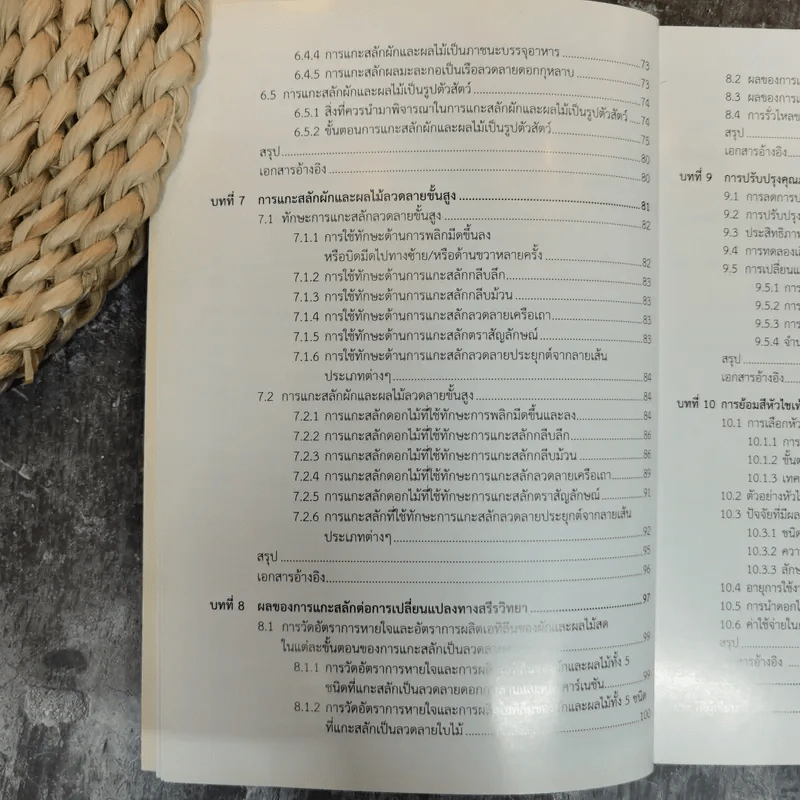 6.4.4 การแกะสลักผักและผลไม้เป็นภาชนะบรรจุอาหาร 73
6.4.5 การแกะสลักผลมะละกอเป็นเรือลวดลายดอกกุหลาบ 73
6.5 การแกะสลักผักและผลไม้เป็นรูปตัวสัตว์ 74
6.5.1 สิ่งที่ควรนำมาพิจารณาในการแกะสลักผักและผลไม้เป็นรูปตัวสัตว์ 74
6.5.2 ขั้นตอนการแกะสลักผักและผลไม้เป็นรูปตัวสัตว์ 75
สรุป 80
เอกสารอ้างอิง 80
บทที่ 7 การแกะสลักผักและผลไม้ลวดลายขั้นสูง 81
7.1 ทักษะการแกะสลักลวดลายขั้นสูง 82
7.1.1 การใช้ทักษะด้านการพลิกมีดขึ้นลง
หรือบิดมีดไปทางซ้าย/หรือด้านขวาหลายครั้ง 82
7.1.2 การใช้ทักษะด้านการแกะสลักกลีบลึก 83
7.1.3 การใช้ทักษะด้านการแกะสลักกลีบม้วน 83
7.1.4 การใช้ทักษะด้านการแกะสลักลวดลายเครือเถา 83
7.1.5 การใช้ทักษะด้านการแกะสลักตราสัญลักษณ์ 83
7.1.6 การใช้ทักษะด้านการแกะสลักลวดลายประยุกต์จากลายเส้น
ประเภทต่างๆ 84
7.2 การแกะสลักผักและผลไม้ลวดลายขั้นสูง 84
7.2.1 การแกะสลักดอกไม้ที่ใช้ทักษะการพลิกมีดขึ้นและลง 84
7.2.2 การแกะสลักดอกไม้ที่ใช้ทักษะการแกะสลักกลีบลึก 86
7.2.3 การแกะสลักดอกไม้ที่ใช้ทักษะการแกะสลักกลีบม้วน 86
7.2.4 การแกะสลักดอกไม้ที่ใช้ทักษะการแกะสลักลวดลายเครือเถา 89
7.2.5 การแกะสลักดอกไม้ที่ใช้ทักษะการแกะสลักตราสัญลักษณ์ 91
7.2.6 การแกะสลักที่ใช้ทักษะการแกะสลักลวดลายประยุกต์จากลายเส้น
ประเภทต่างๆ 92
สรุป 95
เอกสารอ้างอิง 96
บทที่ 8 ผลของการแกะสลักต่อการเปลี่ยนแปลงทางสรีรวิทยา 97
8.1 การวัดอัตราการหายใจและอัตราการผลิตเอทิลีนของผักและผลไม้สด
ในแต่ละขั้นตอนของการแกะสลักเป็นลวดลาย
8.1.1 การวัดอัตราการหายใจและการ และผลไม้ทั้ง 5
ชนิดที่แกะสลักเป็นลวดลายดอก คาร์เนชัน 99
8.1.2 การวัดอัตราการหายใจและการ และผลไม้ทั้ง 5 ชนิด
ที่แกะสลักเป็นลวดลายใบไม้ 100
8.2 ผลของการ
8.3 ผลของการ
8.4 การรั่วไหล
สรุป
เอกสารอ้างอิง
บทที่ 9 การปรับปรุงคุณ
9.1 การลดการ
9.2 การปรับปรุง
9.3 ประสิทธิภาพ
9.4 การทดลอง
9.5 การเปลี่ยน
9.5.1 การ
9.5.2 การ
9.5.3 การ
9.5.4 จำ
สรุป
เอกสารอ้างอิง
บทที่ 10 การย้อมสีหัวไชเท้
10.1 การเลือกหัว
10.1.1 การ
10.1.2 ขั้น
10.1.3 เทค
10.2 ตัวอย่างหัว
10.3 ปัจจัยที่มีผล
10.3.1 ชนิ
10.3.2 ควา
10.3.3 ลักษ
10.4 อายุการใช้
10.5 การนำดอก
10.6 ค่าใช้จ่าย
สรุป